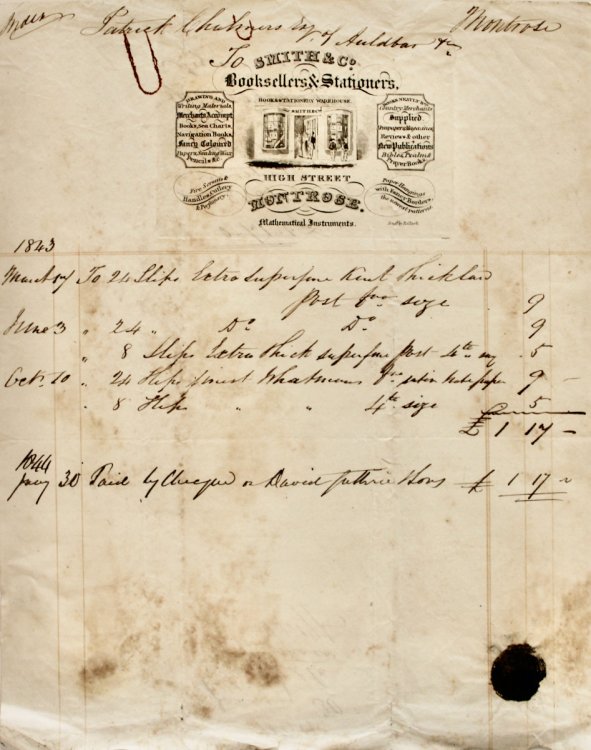 Patrick Chalmers Esq. of Auldbar
Montrose
To SMITH & Co.
Booksellers & Stationers,
BOOK & STATIONERY WAREHOUSE
SMITH & Co
DRAWING AND
Writing Materials,
Merchants Accompt
Books, Sea Charts,
Navigation Books,
Fancy Coloured
Papers, Sealing Wax
Pencils &c.
Country Merchants
Supplied
Newspapers, Magazines,
Reviews & other
New Publications
Bibles, Psalm &
Prayer Books
Fine Scissors &
Handled Cutlery
& Perfumery
HIGH STREET
MONTROSE.
Mathematical Instruments.
Paper Hangings
with Fancy Borders,
the newest patterns.
1843
March 17 To 24 Slips Extra superfine Kent thick laid
Post 8vo size 9
June 3 " 24 " Do Do 9
" 8 Slips Extra thick superfine post 4to 5
Octr. 10 " 24 Slips finest Whatmans 8vo satin Note paper 9 –
" 8 Slips " " 4to size 5
£ 1 17 –
1844
Jany 30 Paid by Cheque on David Guthrie & Sons £ 1 17 –